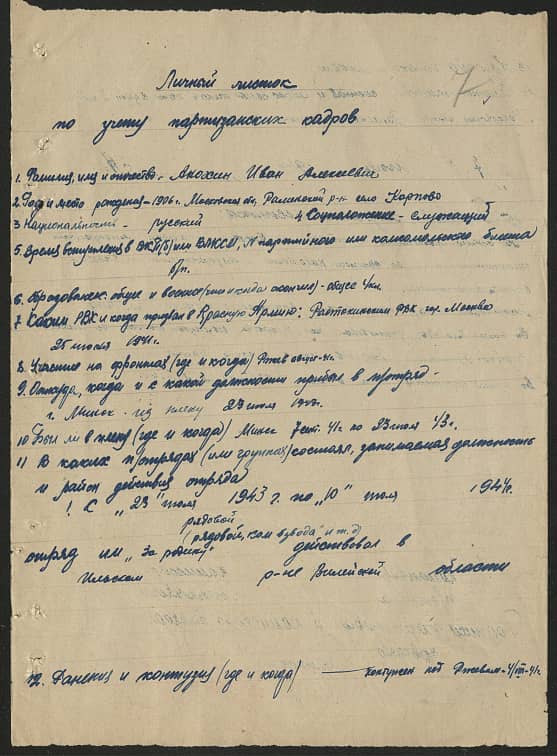 7
Личный листок
по учету партизанских кадров
1. Фамилия, имя и отчество - Анохин Иван Алексеевич
2. Год и место рождения - 1906 г. Московская об. Раменский р-н село Карпово
3 Национальность - русский 4 Соцположение - служащий
5. Время вступления в ВКП(б) или ВЛКСМ, N партийного или комсомольского билета
б/п.
6. Образование: общее и военное (что и когда окончил) - общее 4 кл.
7 Каким РВК и когда призван в Красную Армию: РВК гор. Москвы
25 июля 1941 г.
8. Участие на фронтах (где и когда) Ржев август-41г.
9. Откуда, когда и с какой должности прибыл в п/отряд -
г. Минск - из плену 23 июля 1943г.
10 Был ли в плену (где и когда) Минск 7 сент. 41г по 23 июля 43г.
11 В каких п/отрядах (или группах) состоял, занимаемая должность
и район действия отряда
1 С "23" июля 1943 г. по "10" июля 1944г.
рядовой
(рядовой, ком взвода и т.д)
отряд им "За родину" действовал в
Ильском р-не Вилейской области
12. Ранения и контузия (где и когда) — Контужен под Ржевым - 4/VIII-41г